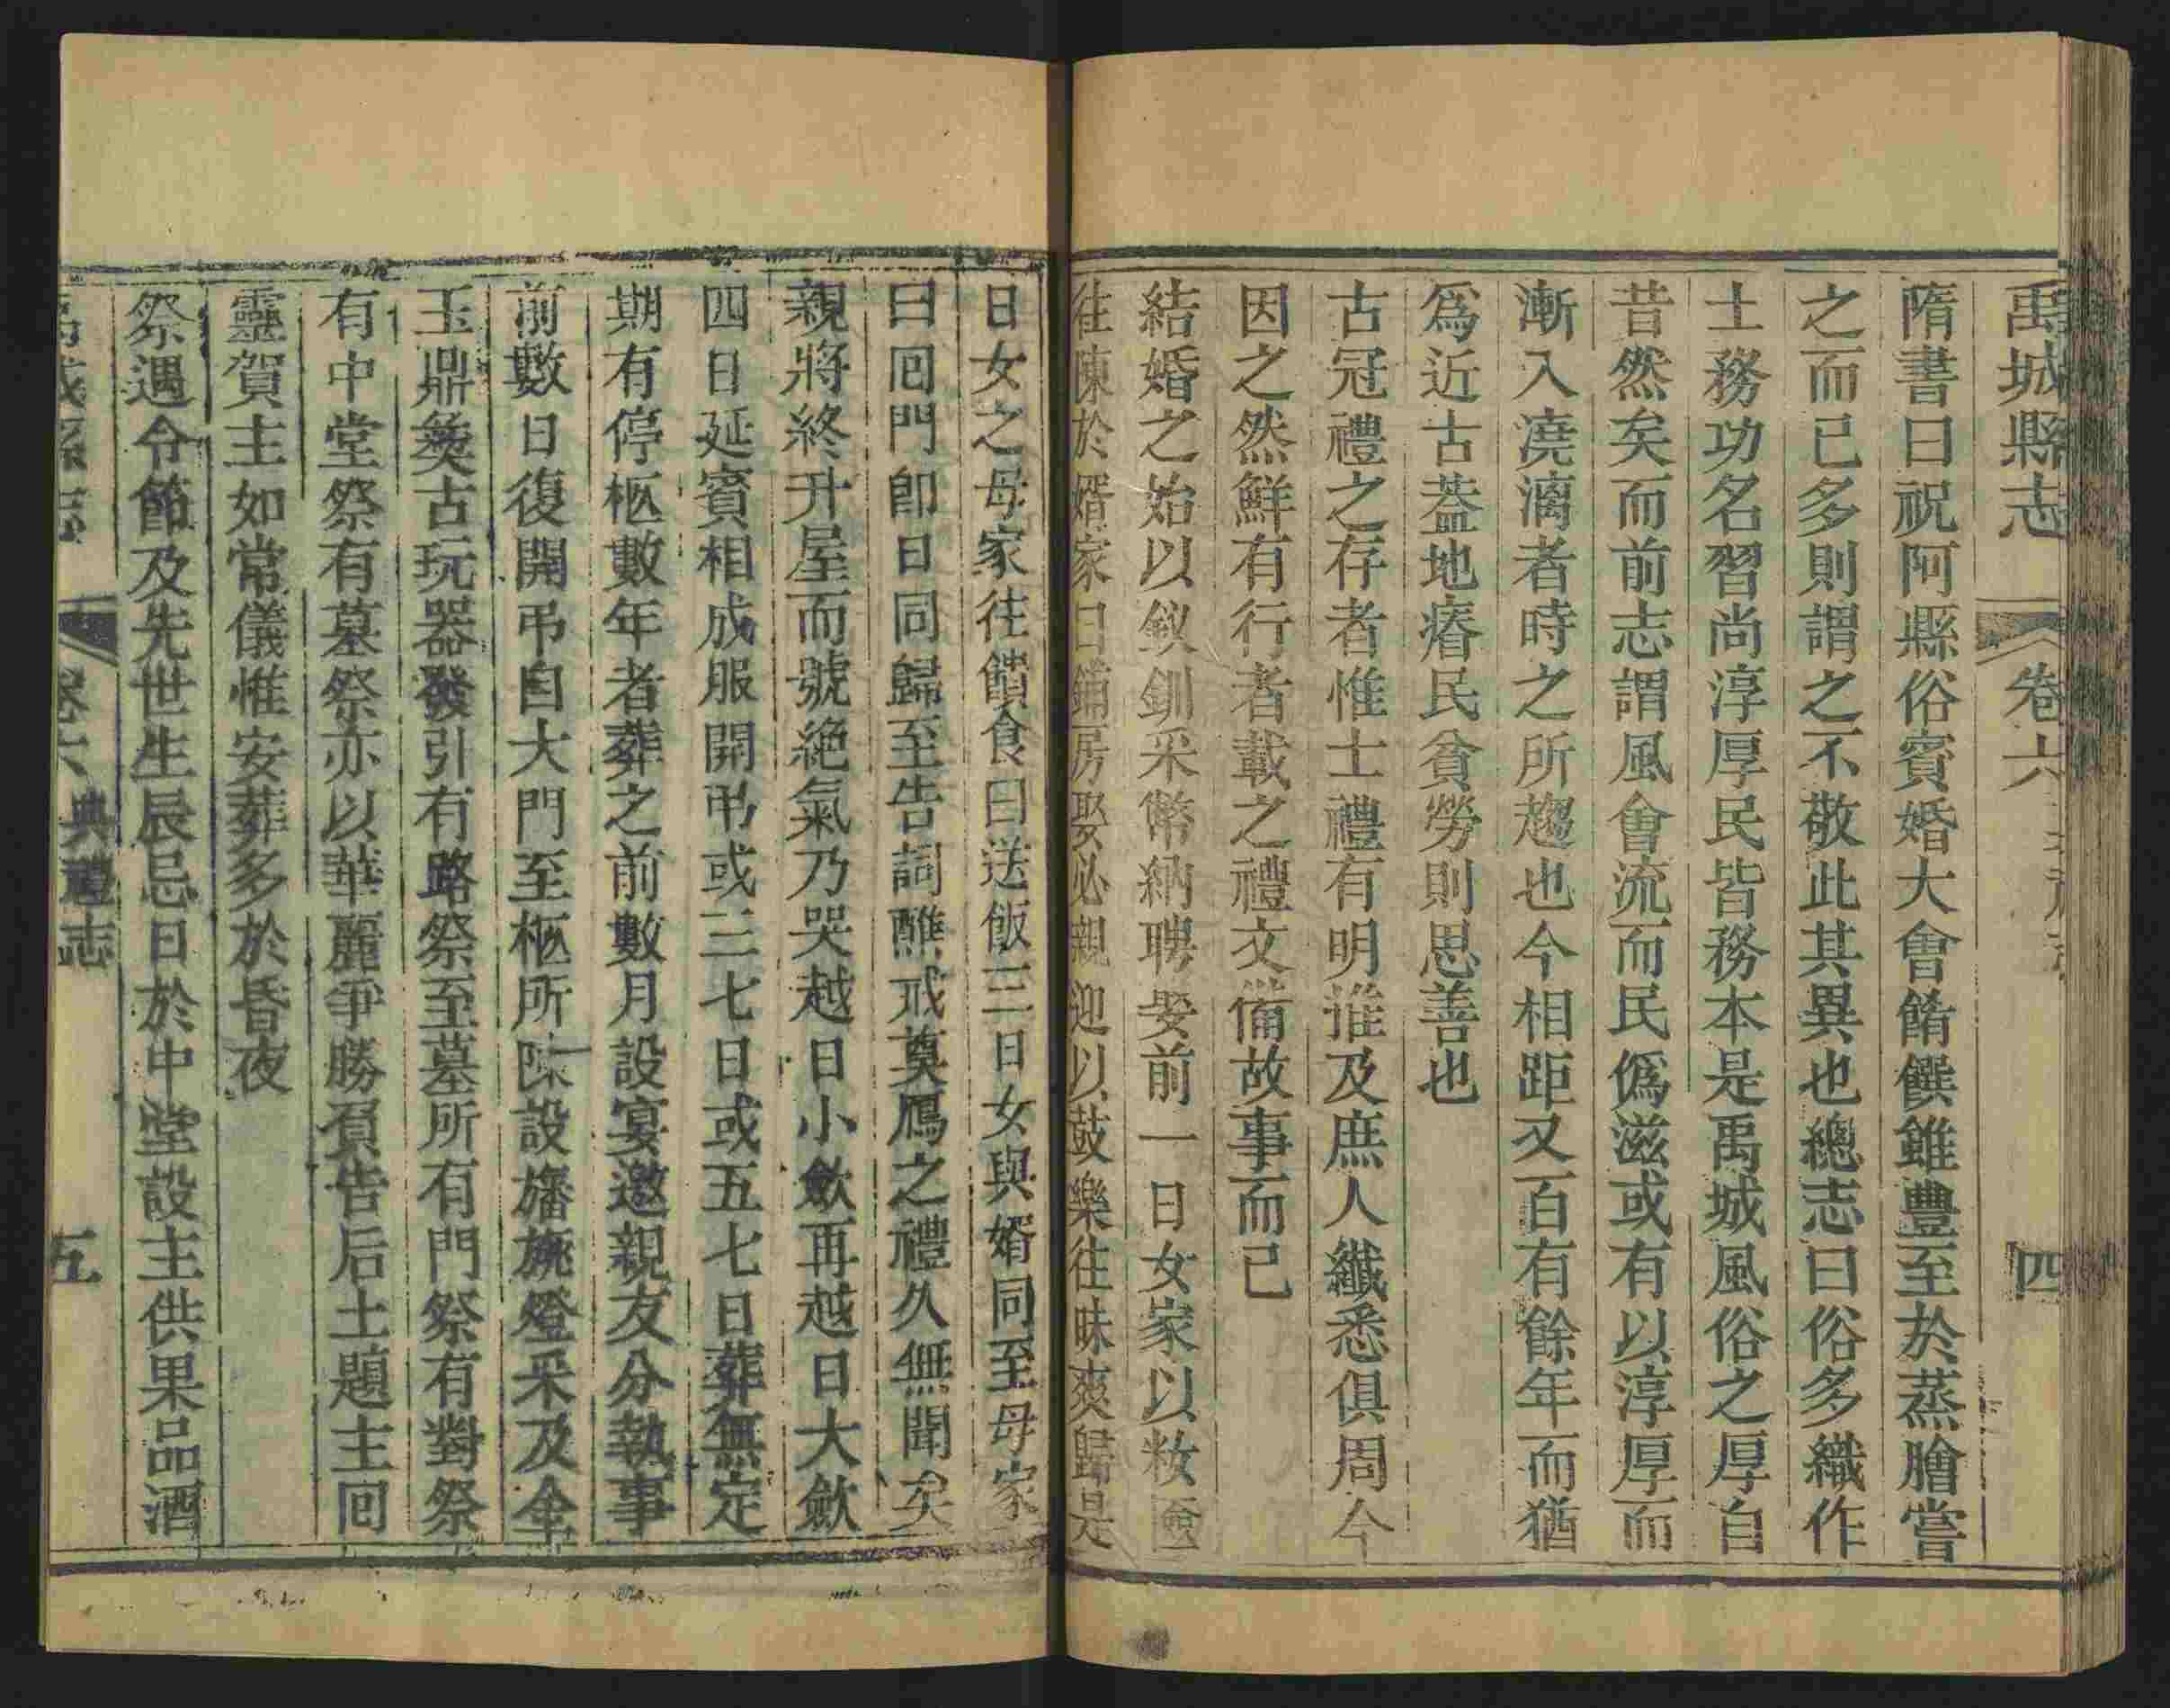 禹城縣志 卷六 四
隋書曰祝阿縣俗賓婚大會餚饌雖豐至於蒸膾嘗
之而已多則謂之不敬此其異也總志曰俗多織作
士務功名習尚淳厚民皆務本是禹城風俗之厚自
昔然矣而前志謂風會流而民僞滋或有以淳厚而
漸入澆漓者時之所趨也今相距又百有餘年而猶
爲近古葢地瘠民貧勞則思善也
古冠禮之存者惟士禮有明推及庶人纖悉俱周今
因之然鮮有行者載之禮文備故事而已
結婚之始以釵釧米幣納聘娶前一日女家以妝奩
往陳於婿家曰鋪房娶必親迎以鼓樂往昧爽歸是
日女之母家往饋食曰送飯三日女與婿同至母家
曰回門卽日同歸至告詞醮戒奠鴈之禮久無聞矣
親將終升屋而號絶氣乃哭越日小斂再越日大斂
四日延賓相成服開弔或三七日或五七日葬無定
期有停柩數年者葬之前數月設宴邀親友分執事
前數日復開弔自大門至柩所陳設旛旐燈采及金
玉鼎彜古玩器發引有路祭至墓所有門祭有對祭
有中堂祭有墓祭亦以華麗爭勝負告后土題主回
靈賀主如常儀惟安葬多於昏夜
祭遇令節及先世生辰忌日於中堂設主供果品酒
禹城縣志 卷六 典禮志 五